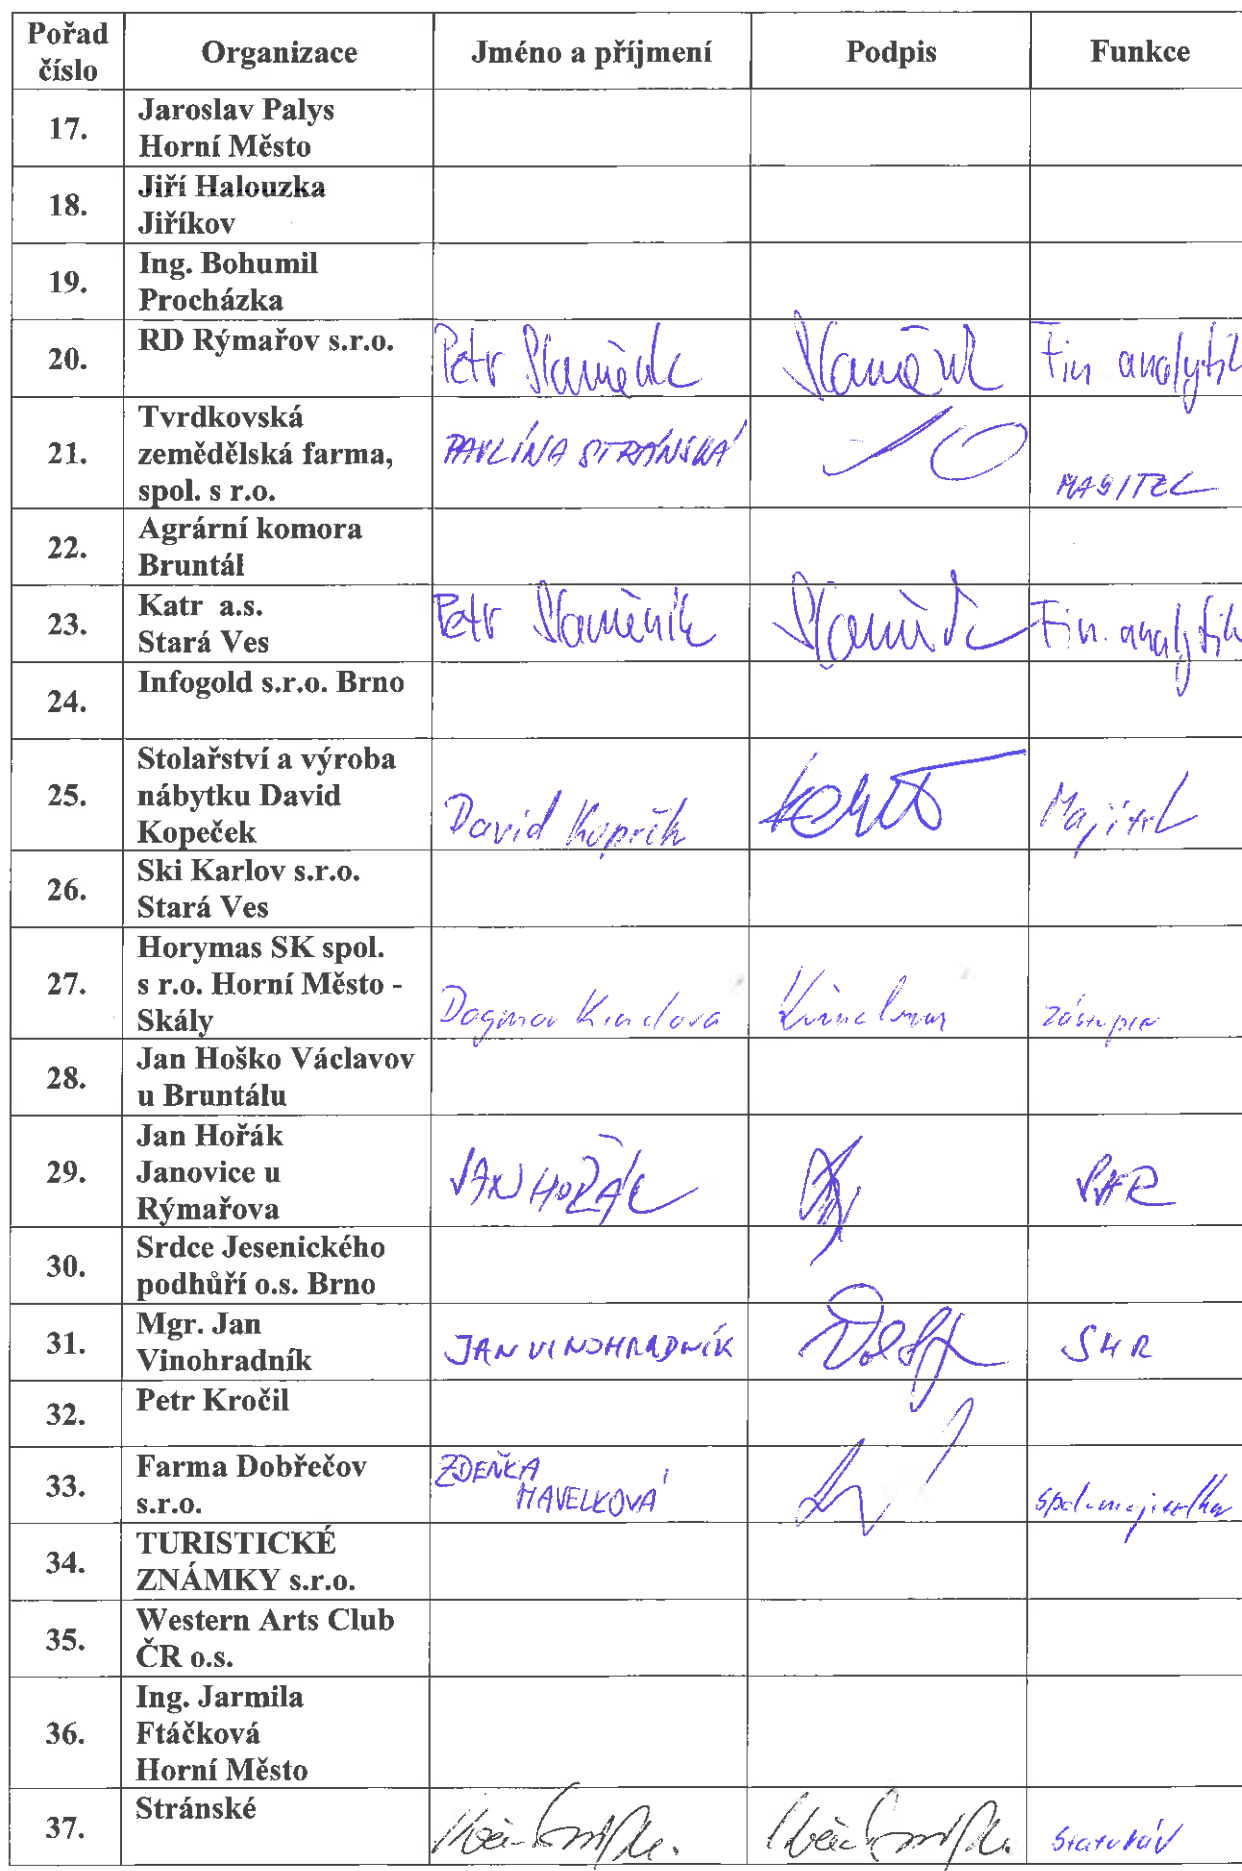 Pořad číslo
Organizace
Jméno a příjmení
Podpis
Funkce
17.
Jaroslav Palys
Horní Město
18.
Jiří Halouzka
Jiříkov
19.
Ing. Bohumil
Procházka
20.
RD Rýmařov s.r.o.
Petr Slaměník
Slaměník
Fin analytik
21.
Tvrdkovská
zemědělská farma,
spol. s r.o.
PAVLÍNA STRÁNSKÁ
MAJITEL
22.
Agrární komora
Bruntál
23.
Katr a.s.
Stará Ves
Petr Slaměník
Fin. analytik
24.
Infogold s.r.o. Brno
25.
Stolařství a výroba
nábytku David
Kopeček
David Kopeček
Majitel
26.
Ski Karlov s.r.o.
Stará Ves
27.
Horymas SK spol.
s r.o. Horní Město -
Skály
Dagmar
zástupce
28.
Jan Hoško Václavov
u Bruntálu
29.
Jan Hořák
Janovice u
Rýmařova
JAN HOŘÁK
30.
Srdce Jesenického
podhůří o.s. Brno
31.
Mgr. Jan
Vinohradník
JAN VINOHRADNÍK
SHR
32.
Petr Kročil
33.
Farma Dobřečov
s.r.o.
ZDEŇKA
HAVELKOVÁ
spolumajitelka
34.
TURISTICKÉ
ZNÁMKY s.r.o.
35.
Western Arts Club
ČR o.s.
36.
Ing. Jarmila
Ftáčková
Horní Město
37.
Stránské
statutár